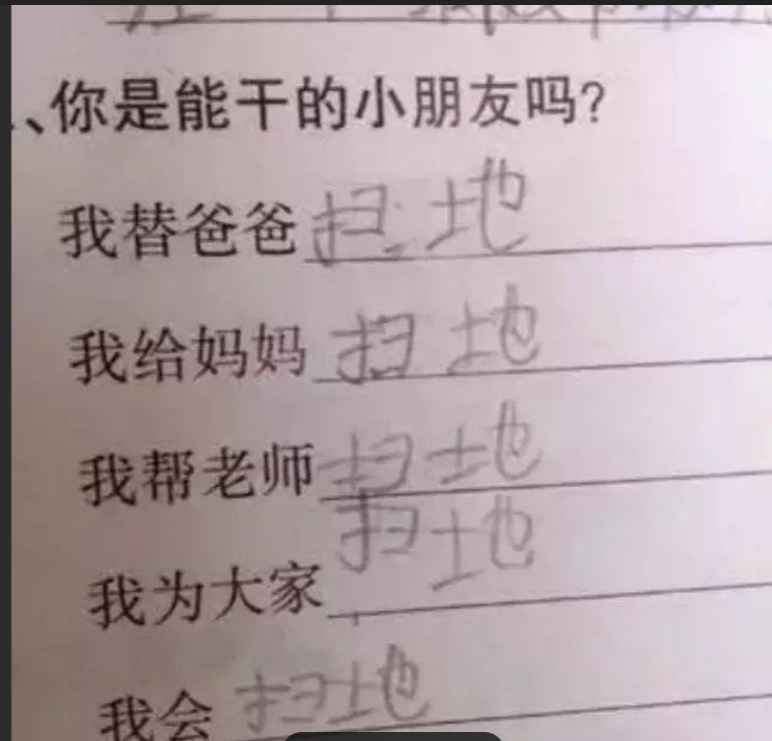 、你是能干的小朋友吗?
我替爸爸扫地
我给妈妈扫地
我帮老师扫地
我为大家扫地
我会扫地